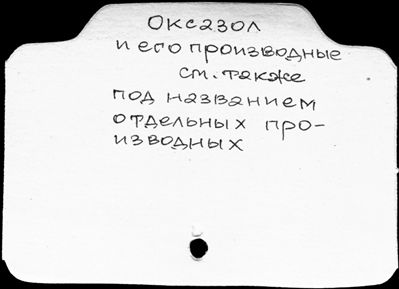 Оксазол
и его производные
см. также
под названием
отдельных про-
изводных